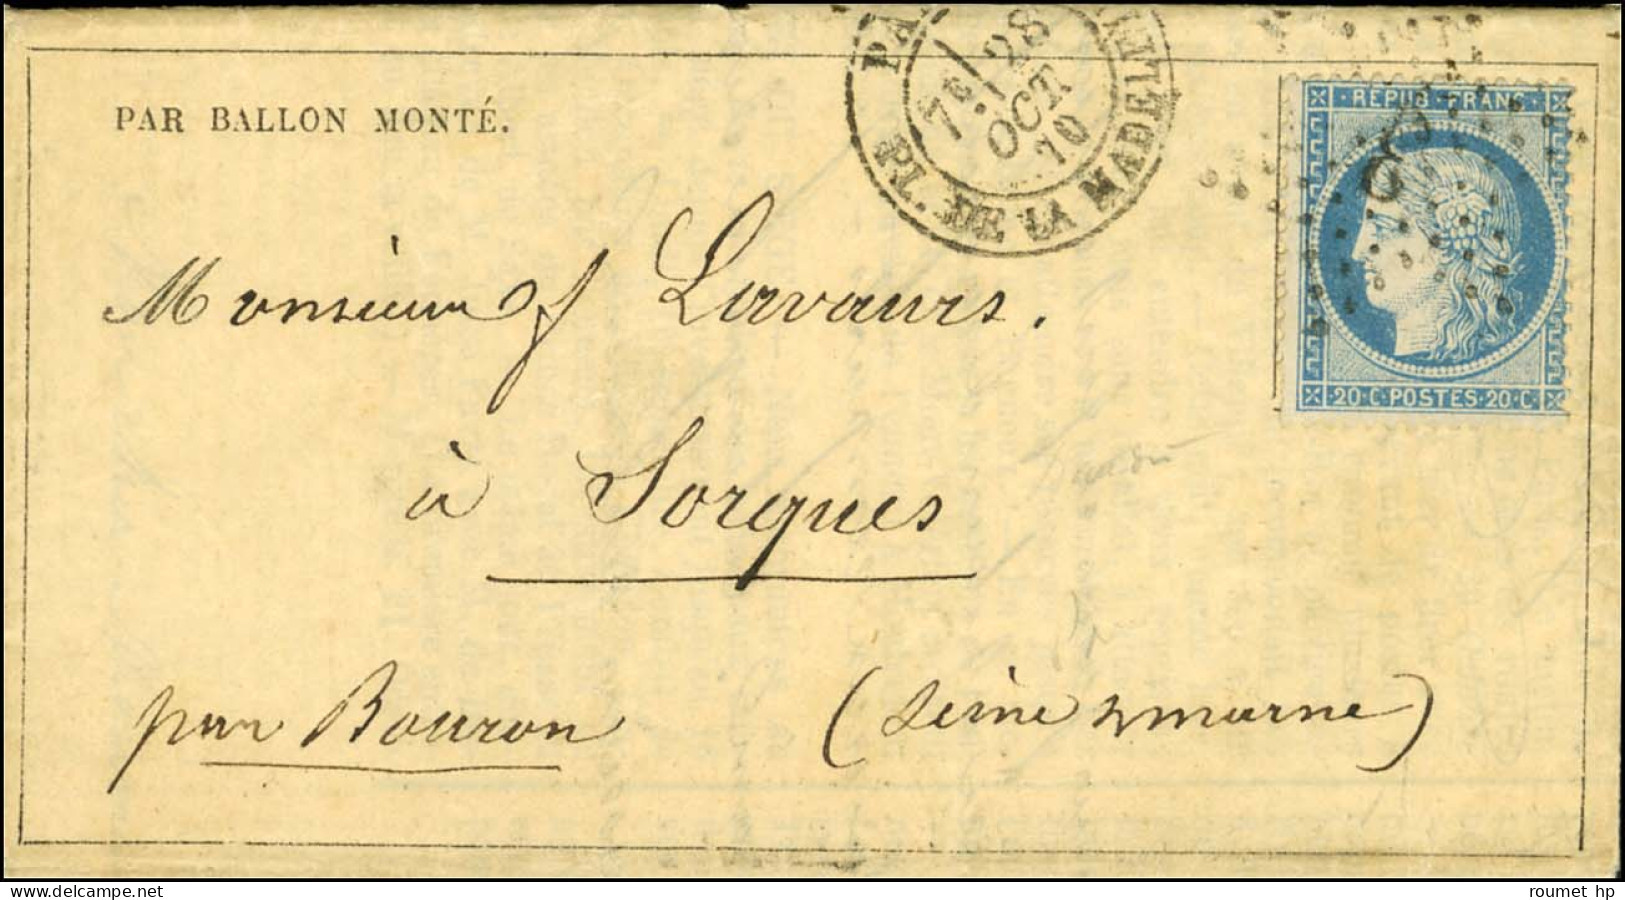 PAR BALLON MONTÉ.
7E / 28
OCT.
70
PL. DE LA MADELEI
REPUB. FRANC.
20·C·POSTES·20·C.
Monsieur Lavaurs.
à Sorques
par Bouron (Seine & marne)
roumet hp